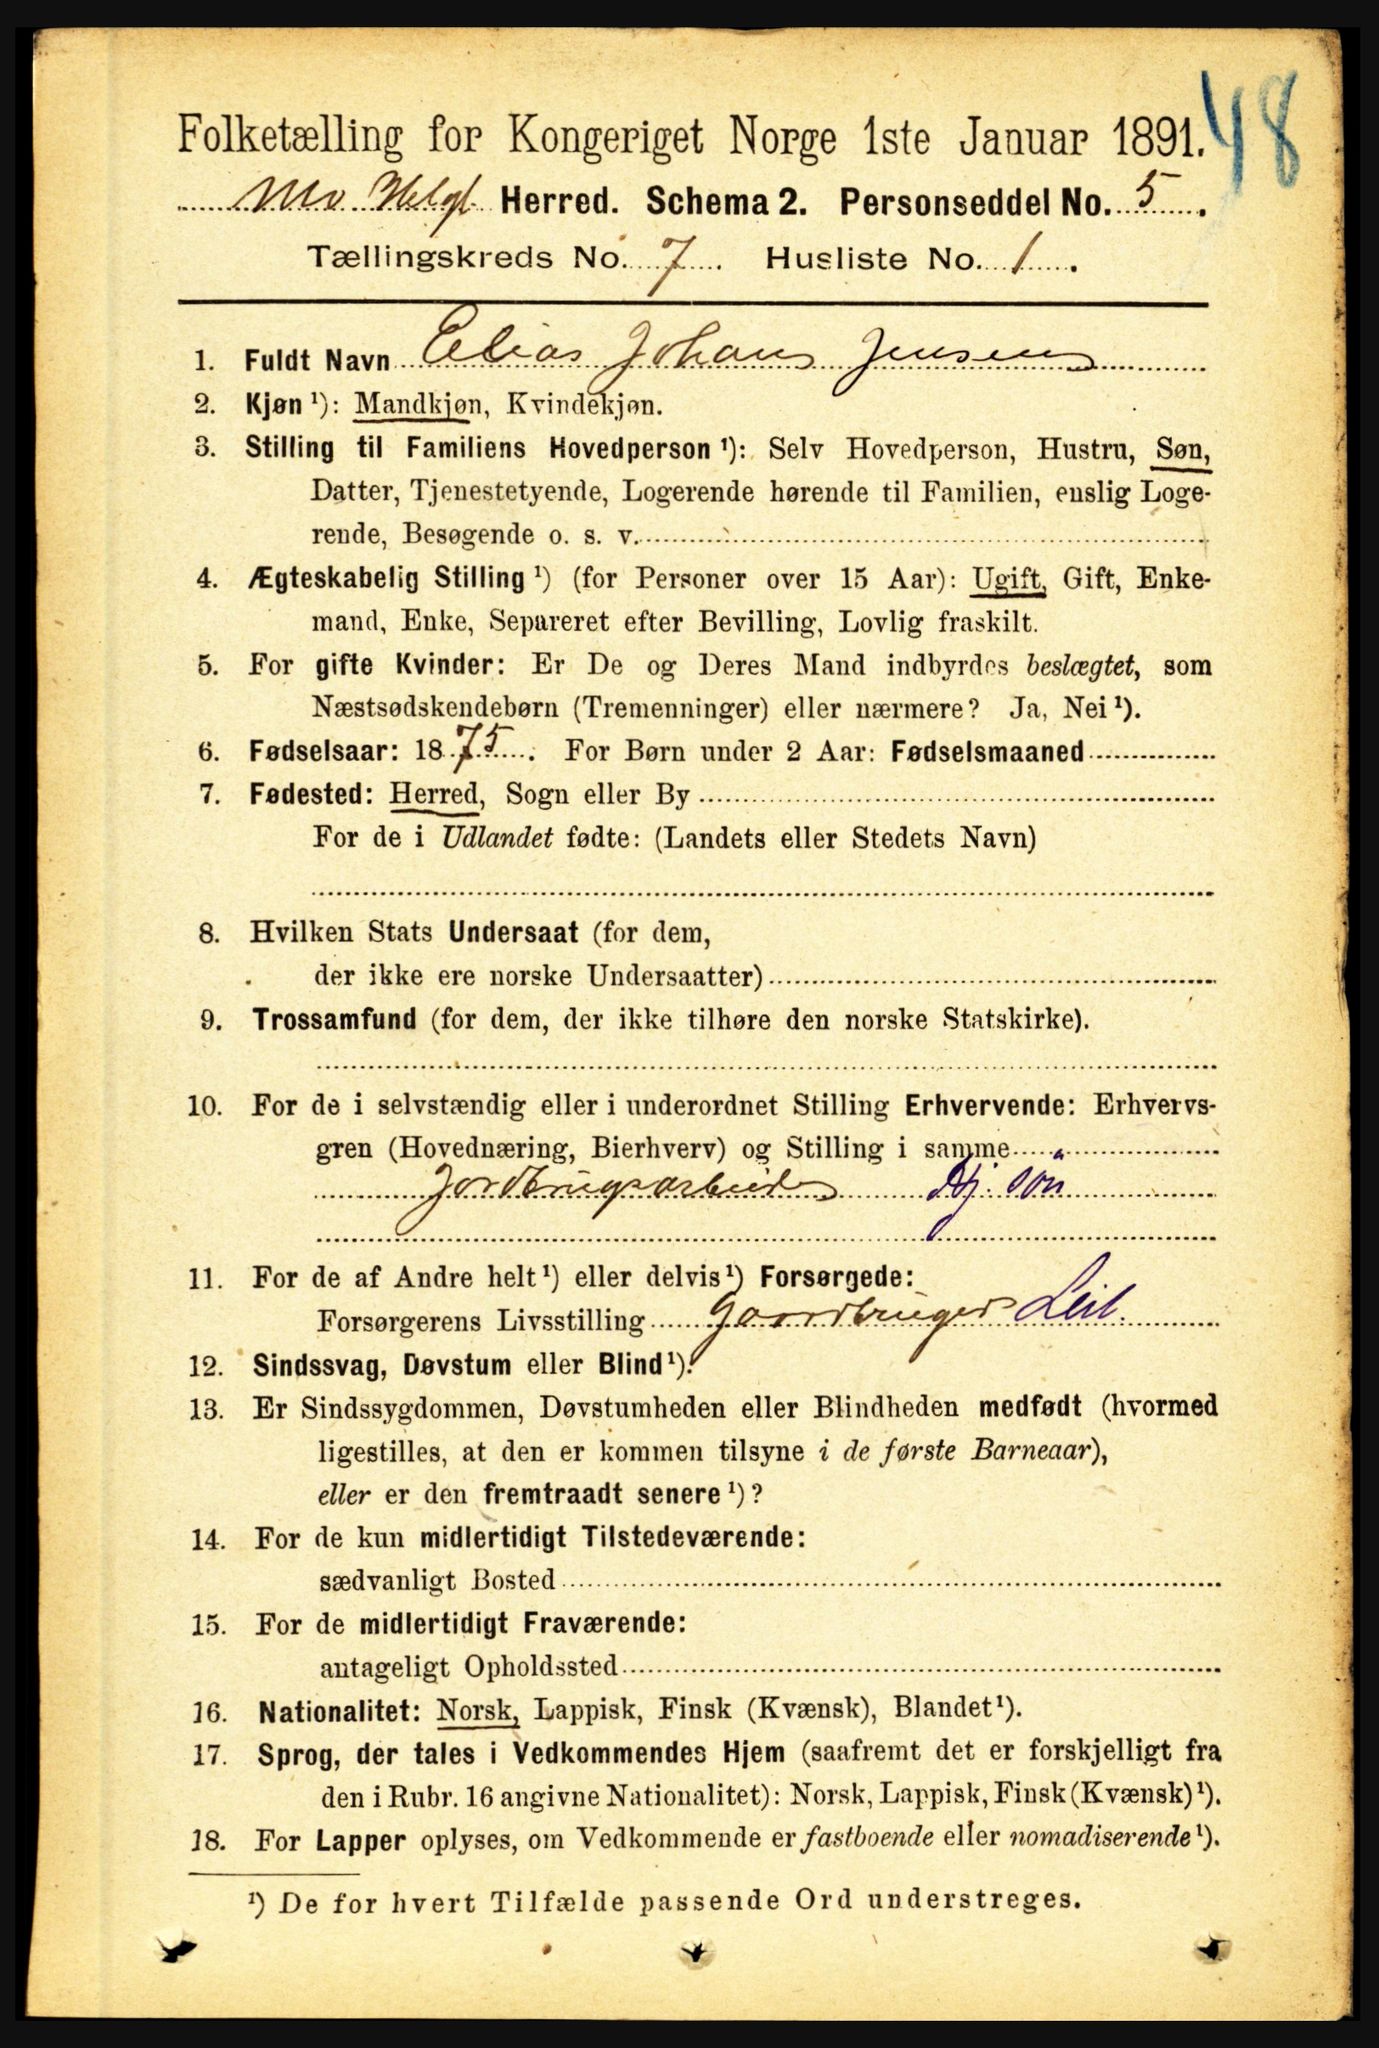 48
Folketælling for Kongeriget Norge 1ste Januar 1891.
Mo Helgl. Herred. Schema 2. Personseddel No. 5.
Tællingskreds No. 7. Husliste No. 1.
1. Fuldt Navn Elias Johans Jensen
2. Kjøn ¹): Mandkjøn, Kvindekjøn.
3. Stilling til Familiens Hovedperson ¹): Selv Hovedperson, Hustru, Søn,
Datter, Tjenestetyende, Logerende hørende til Familien, enslig Loge-
rende, Besøgende o. s. v.
4. Ægteskabelig Stilling ¹) (for Personer over 15 Aar): Ugift, Gift, Enke-
mand, Enke, Separeret efter Bevilling, Lovlig fraskilt.
5. For gifte Kvinder: Er De og Deres Mand indbyrdes beslægtet, som
Næstsødskendebørn (Tremenninger) eller nærmere? Ja, Nei ¹).
6. Fødselsaar: 1875. For Børn under 2 Aar: Fødselsmaaned
7. Fødested: Herred, Sogn eller By
For de i Udlandet fødte: (Landets eller Stedets Navn)
8. Hvilken Stats Undersaat (for dem,
der ikke ere norske Undersaatter)
9. Trossamfund (for dem, der ikke tilhøre den norske Statskirke).
10. For de i selvstændig eller i underordnet Stilling Erhvervende: Erhvervs-
gren (Hovednæring, Bierhverv) og Stilling i samme
Jordbrugsarbeide
11. For de af Andre helt ¹) eller delvis ¹) Forsørgede:
Forsørgerens Livsstilling Gaardbruger Leil.
12. Sindssvag, Døvstum eller Blind ¹).
13. Er Sindssygdommen, Døvstumheden eller Blindheden medfødt (hvormed
ligestilles, at den er kommen tilsyne i de første Barneaar),
eller er den fremtraadt senere ¹)?
14. For de kun midlertidigt Tilstedeværende:
sædvanligt Bosted
15. For de midlertidigt Fraværende:
antageligt Opholdssted
16. Nationalitet: Norsk, Lappisk, Finsk (Kvænsk), Blandet ¹).
17. Sprog, der tales i Vedkommendes Hjem (saafremt det er forskjelligt fra
den i Rubr. 16 angivne Nationalitet): Norsk, Lappisk, Finsk (Kvænsk) ¹).
18. For Lapper oplyses, om Vedkommende er fastboende eller nomadiserende ¹).
¹) De for hvert Tilfælde passende Ord understreges.